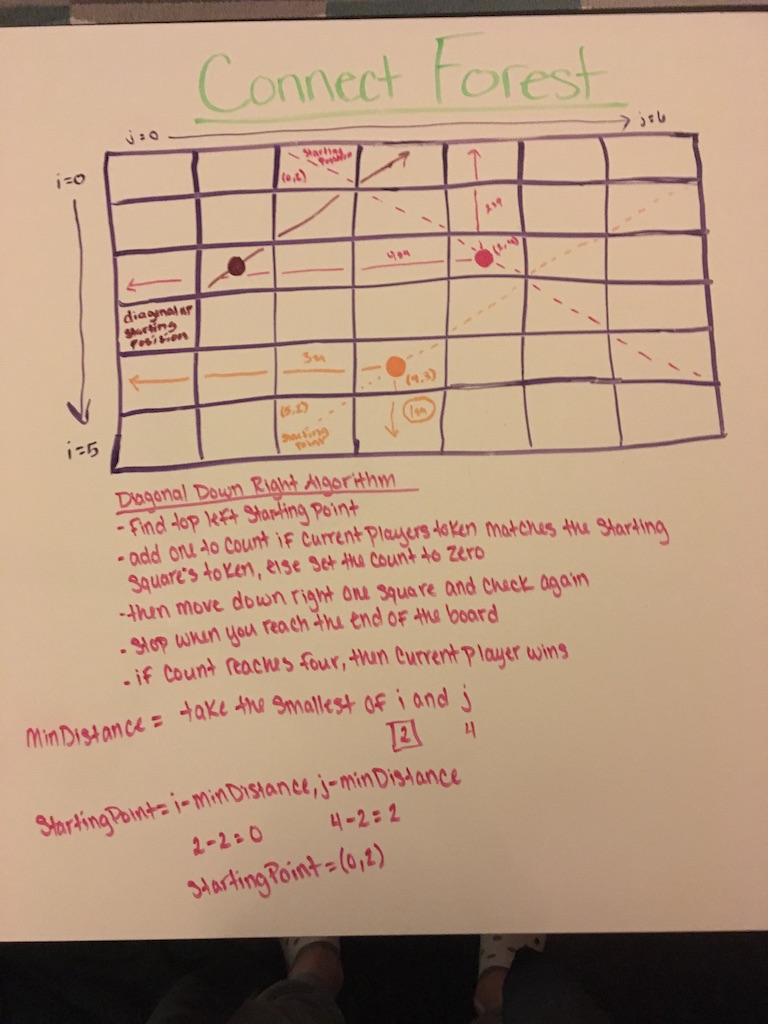 Connect Forest
j=0
j=6
i=0
Starting
Position
(0,2)
2m
(2,4)
4m
diagonal up
starting
position
3m
(4,3)
(5,2)
starting
point
1m
i=5
Diagonal Down Right Algorithm
- find top left starting Point
- add one to count if current players token matches the starting
square's token, else set the count to zero
- then move down right one square and check again
- stop when you reach the end of the board
- if count reaches four, then current player wins
MinDistance = take the smallest of i and j
2 4
StartingPoint = i-minDistance, j-minDistance
2-2=0 4-2=2
StartingPoint = (0,2)